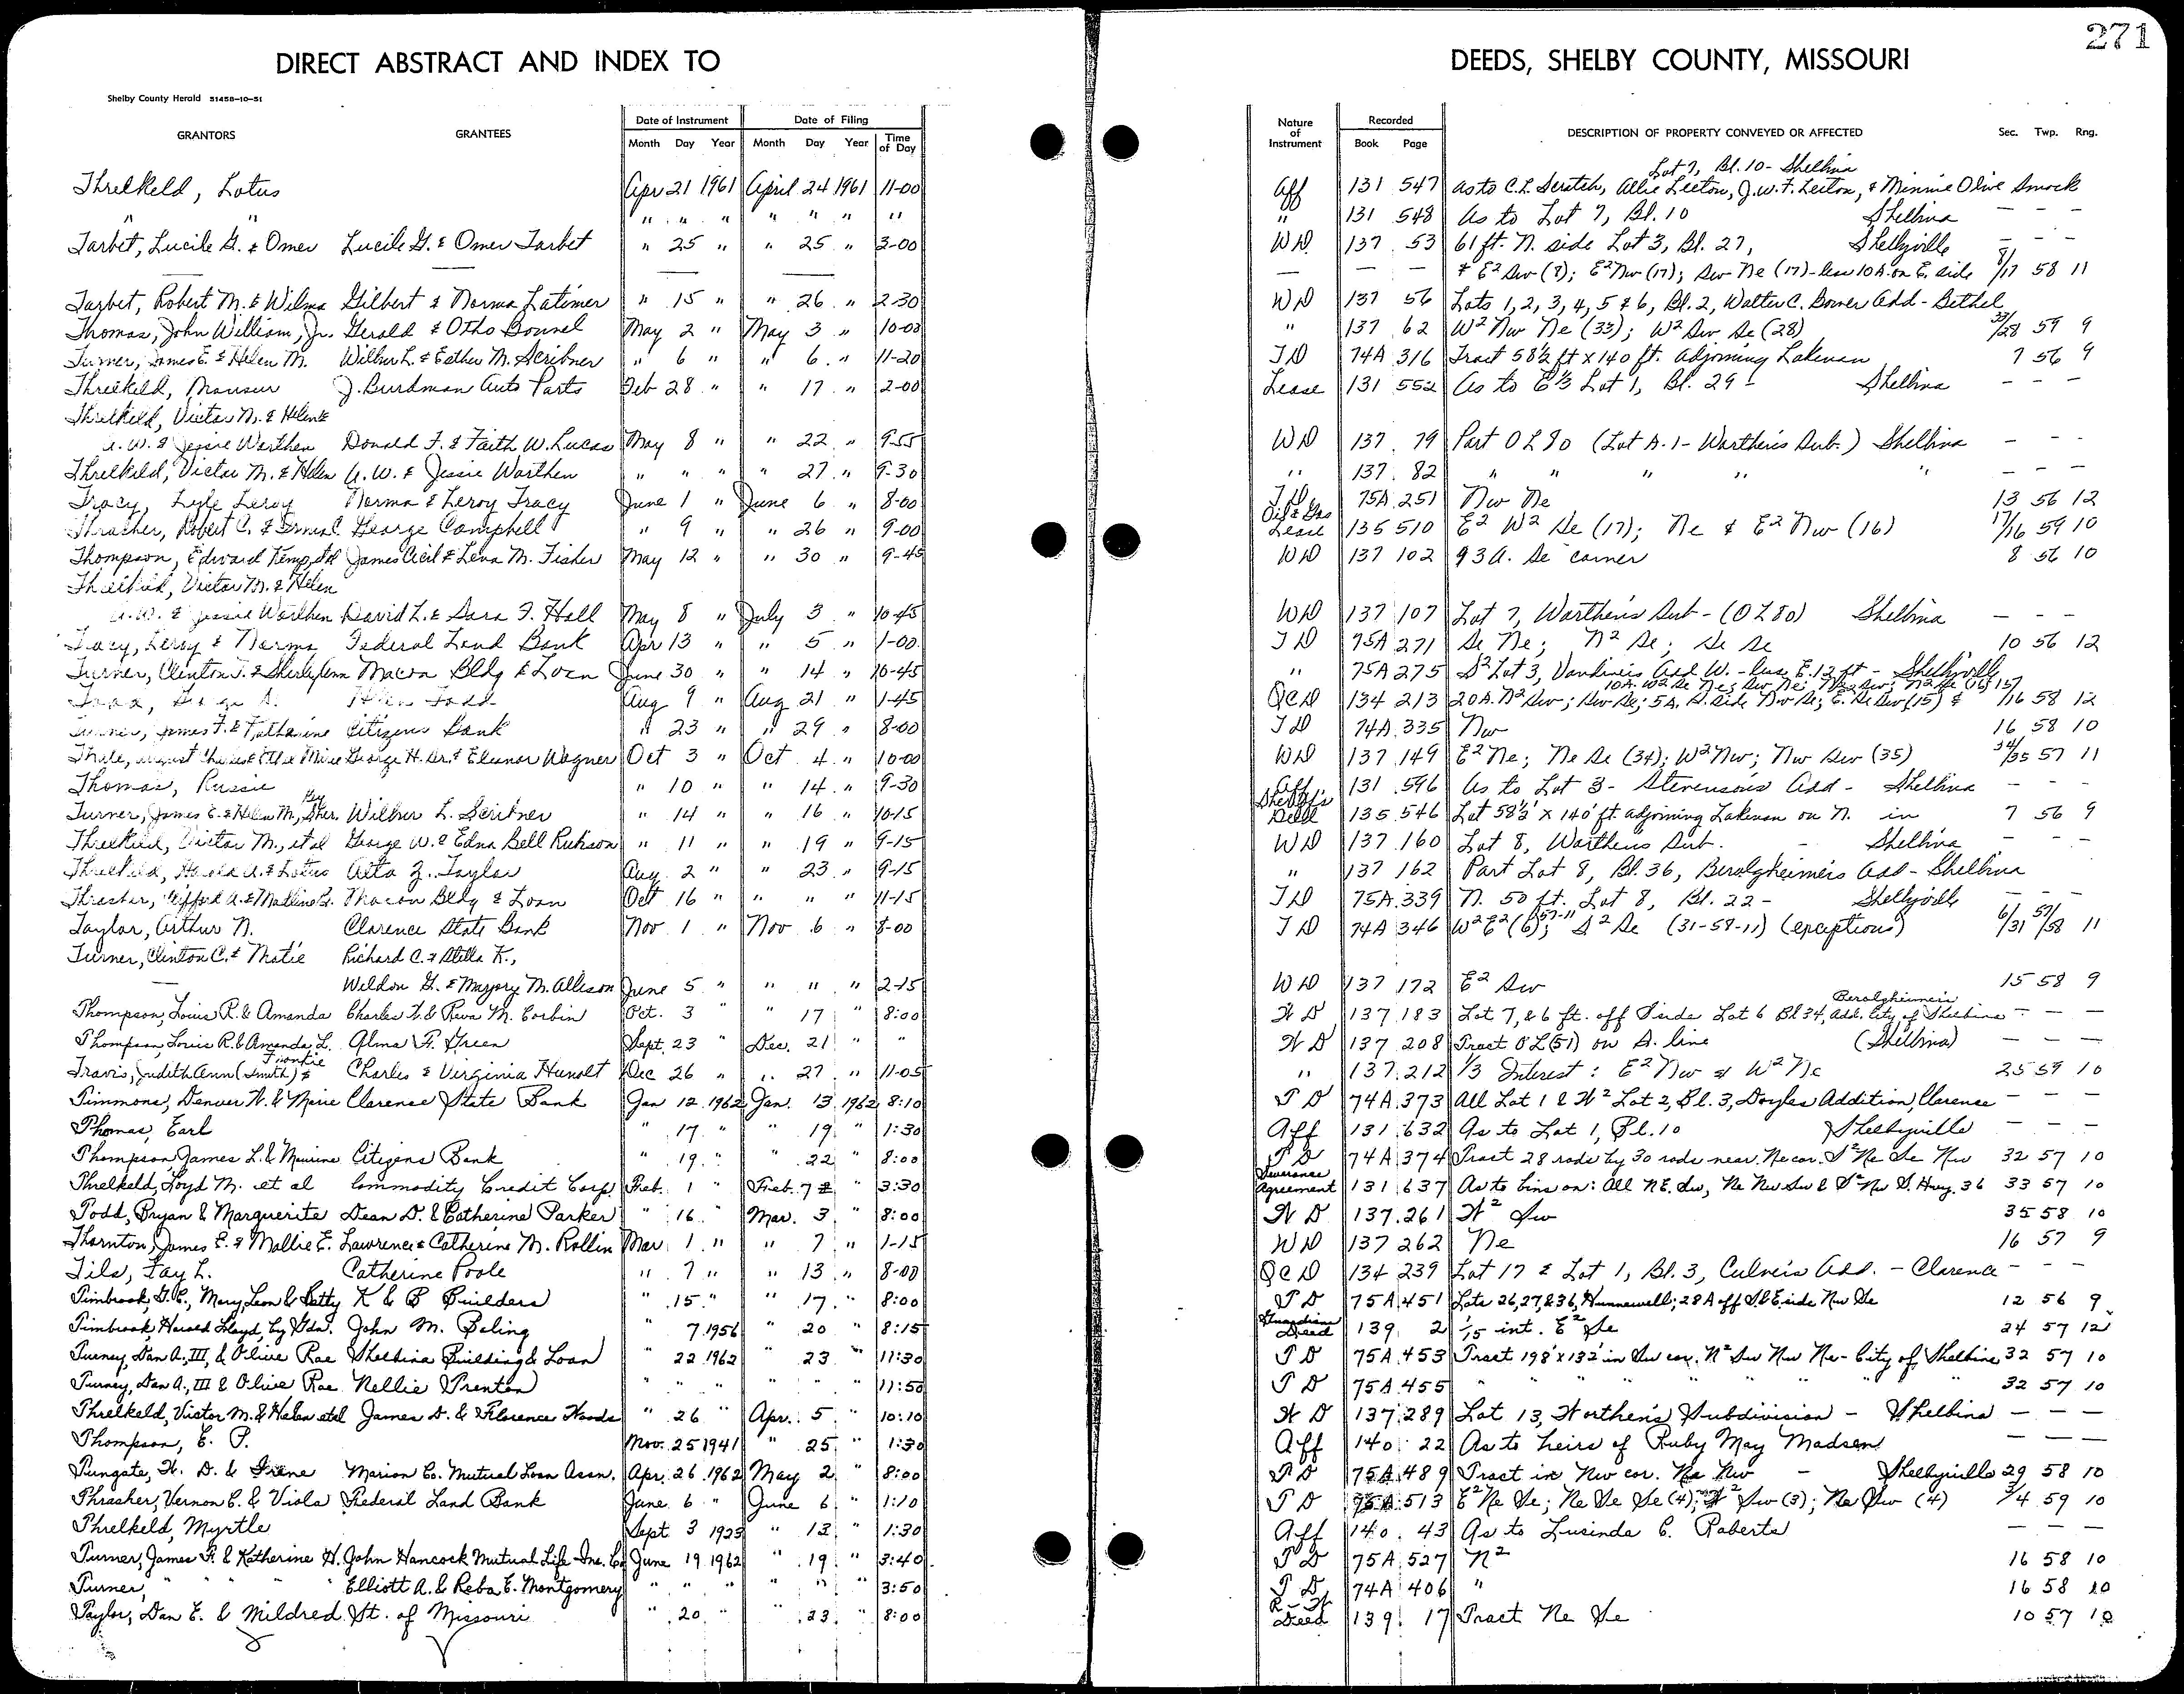 271
DIRECT ABSTRACT AND INDEX TO DEEDS, SHELBY COUNTY, MISSOURI
Shelby County Herald 51458-10-51
GRANTORS GRANTEES Date of Instrument Date of Filing Nature of Instrument Recorded DESCRIPTION OF PROPERTY CONVEYED OR AFFECTED Sec. Twp. Rng.
Month Day Year Month Day Year Time of Day Book Page
Lot 7, Bl. 10 - Shelbina
Threlkeld, Lotus Apr 21 1961 April 24 1961 11-00 Aff 131 547 As to C.L. Scratch, Allie Leeton, J.W.F. Leeton, & Minnie Olive Smock
" " " " " " " " " 131 548 As to Lot 7, Bl. 10 Shelbina — — —
Tarbet, Lucile G. & Omer Lucile G. & Omer Tarbet " 25 " " 25 " 3-00 WD. 137 53 61 ft. N. side Lot 3, Bl. 27, Shelbyville — — —
— — — — — — — & E² Sw (8); E² Nw (17); Sw Ne (17) - less 10 A. on E. side 8/17 58 11
Tarbet, Robert M. & Wilma Gilbert & Norma Latimer " 15 " " 26 " 2-30 WD 137 56 Lots 1, 2, 3, 4, 5 & 6, Bl. 2, Walter C. Bower Add - Bethel
Thomas, John William, Jr. Gerald & Otho Bonnel May 2 " May 3 " 10-00 " 137 62 W² Nw Ne (33); W² Sw Se (28) 33/28 59 9
Turner, James E. & Helen M. Wilbur L. & Esther M. Scribner " 6 " " 6 " 11-20 TD 74A 316 Tract 58½ ft x 140 ft. adjoining Lakenan 7 56 9
Threlkeld, Mansur J. Burdman Auto Parts Feb 28 " " 17 " 2-00 Lease 131 552 As to E⅓ Lot 1, Bl. 29 - Shelbina — — —
Threlkeld, Victor M. & Helen &
A. W. & Jessie Worthen Donald F. & Faith W. Lucas May 8 " " 22 " 9-55 WD 137 79 Part OL 80 (Lot A. 1 - Worthen's Sub.) Shelbina — — —
Threlkeld, Victor M. & Helen A. W. & Jessie Worthen " " " " 27 " 9-30 " 137 82 " " " " " — — —
Tracy, Lyle Leroy Norma & Leroy Tracy June 1 " June 6 " 8-00 TD 75A 251 Nw Ne 13 56 12
Thrasher, Robert C. & George Campbell " 9 " " 26 " 9-00 Oil & Gas Lease 135 510 E² W² Se (17); Ne & E² Nw (16) 17/16 59 10
Thompson, Edward Kemp, etal James Cecil & Lena M. Fisher May 12 " " 30 " 9-45 WD 137 102 93 A. Se corner 8 56 10
Threlkeld, Victor M. & Helen
A. W. & Jessie Worthen David L. & Sara F. Hall May 8 " July 3 " 10-45 WD 137 107 Lot 7, Worthen's Sub - (OL 80) Shelbina — — —
Tracy, Leroy & Norma Federal Land Bank Apr 13 " " 5 " 1-00 TD 75A 271 Se Ne; N² Se; Se Se 10 56 12
Turner, Clinton J. & Shirleylenn Macon Bldg & Loan June 30 " " 14 " 10-45 " 75A 275 S² Lot 3, Add W. - less E. 12 ft - Shelbyville
10A. W² Se Ne; Sw Ne; N² Se (16) 15/
Todd, George A. Helen Todd Aug 9 " Aug 21 " 1-45 QCD 134 213 20A. N² Sw; Nw Se; 5A. S. side Nw Se; E. Se Sw (15) & /16 58 12
Turner, James F. & Katharine Citizens Bank " 23 " " 29 " 8-00 TD 74A 335 Nw 16 58 10
Thiele, George H. Sr. & Eleanor Wagner Oct 3 " Oct 4 " 10-00 WD 137 149 E² Ne; Ne Se (34); W² Nw; Nw Sw (35) 34/35 57 11
Thomas, Russie " 10 " " 14 " 9-30 Aff 131 596 As to Lot 3 - Stevenson's Add - Shelbina — — —
Turner, James E. & Helen M, By Sher. Wilbur L. Scribner " 14 " " 16 " 10-15 Sheriff's Deed 135 546 Lot 58½' x 140' ft. adjoining Lakenan on N. in 7 56 9
Threlkeld, Victor M., et al George W. & Edna Bell Rickison " 11 " " 19 " 9-15 WD 137 160 Lot 8, Worthens Sub. - Shelbina — — —
Threlkeld, Harold A. & Lotus Arta Z. Taylor Aug. 2 " " 23 " 9-15 " 137 162 Part Lot 8, Bl. 36, Berolgheimer's Add - Shelbina
Thrasher, Clifford A. & Madline B. Macon Bldg & Loan Oct 16 " " " " 11-15 TD 75A 339 N. 50 ft. Lot 8, Bl. 22 - Shelbyville — — —
Taylor, Arthur N. Clarence State Bank Nov 1 " Nov 6 " 8-00 TD 74A 346 W² E² (6) 57-11; S² Se (31-58-11) (exceptions) 6/31 57/58 11
Turner, Clinton C. & Matie Richard C. & Stella K.,
— Weldon G. & Marjory M. Allison June 5 " " " " 2-15 WD 137 172 E² Sw 15 58 9
Thompson, Louis R. & Amanda Charles W. & Reva M. Corbin Oct. 3 " " 17 " 8:00 WD 137 183 Lot 7, & 6 ft. off S side Lot 6 Bl 34, Berolgheimers Add. City of Shelbina — — —
Thompson, Louis R. & Amanda L. Alma F. Green Sept. 23 " Dec. 21 " " WD 137 208 Tract OL (51) on S. line (Shelbina) — — —
Travis, Judith Ann (Smith) & Charles & Virginia Hunolt Dec 26 " " 27 " 11-05 " 137 212 ⅓ Interest: E² Nw & W² Ne 25 59 10
Timmons, Denver W. & Marie Clarence State Bank Jan 12 1962 Jan. 13 1962 8:10 TD 74A 373 All Lot 1 & W² Lot 2, Bl. 3, Doyles Addition, Clarence — — —
Thomas, Earl " 17 " " 19 " 1:30 Aff 131 632 As to Lot 1, Bl. 10 Shelbyville — — —
Thompson, James L. & Maurine Citizens Bank " 19 " " 22 " 8:00 TD 74A 374 Tract 28 rods by 30 rods near Ne cor. S² Ne Se Nw 32 57 10
Threlkeld, Loyd M. et al Commodity Credit Corp. Feb. 1 " Feb. 7 " 3:30 Severance Agreement 131 637 As to bins on: All N.E. Sw, Ne Nw Sw & S² Nw S. Hwy. 36 33 57 10
Todd, Bryan & Marguerite Dean D. & Catherine Parker " 16 " Mar. 3 " 8:00 WD 137 261 W² Sw 35 58 10
Thornton, James E. & Mollie E. Lawrence & Catherine M. Rollin Mar 1 " " 7 " 1-15 WD 137 262 Ne 16 57 9
Tils, Fay L. Catherine Poole " 7 " " 13 " 8-00 QCD 134 239 Lot 17 & Lot 1, Bl. 3, Culver's Add. - Clarence — — —
Timbrook, G. E., Mary, Leon & Betty K & B Builders " 15 " " 17 " 8:00 TD 75A 451 Lots 26, 27, & 36, Hunnewell; 28 A off S. & E side Nw Se 12 56 9
Timbrook, Harold Lloyd, by Gdn. John M. Boling " 7 1956 " 20 " 8:15 Guardians Deed 139 2 1/15 int. E² Se 24 57 12
Turney, Dan A., III, & Olive Rae Shelbina Building & Loan " 22 1962 " 23 " 11:30 TD 75A 453 Tract 198' x 132' in Sw cor. N² Sw Nw Ne - City of Shelbina 32 57 10
Turney, Dan A., III & Olive Rae Nellie Trenton " " " " " " 11:50 TD 75A 455 " " " " " 32 57 10
Threlkeld, Victor M. & Helen etal James D. & Florence Woods " 26 " Apr. 5 " 10:10 WD 137 289 Lot 13, Worthen's Subdivision - Shelbina — — —
Thompson, E. P. Nov. 25 1941 " 25 " 1:30 Aff 140 22 As to heirs of Ruby May Madsen — — —
Tungate, W. D. & Irene Marion Co. Mutual Loan Assn. Apr. 26 1962 May 2 " 8:00 TD 75A 489 Tract in Nw cor. Ne Nw - Shelbyville 29 58 10
Thrasher, Vernon C. & Viola Federal Land Bank June 6 " June 6 " 1:10 TD 75A 513 E² Ne Se; Ne Se Se (4); W² Sw (3); Ne Sw (4) 3/4 59 10
Threlkeld, Myrtle Sept 3 1923 " 13 " 1:30 Aff 140 43 As to Lucinda C. Roberts — — —
Turner, James F. & Katherine H. John Hancock Mutual Life Ins. Co June 19 1962 " 19 " 3:40 TD 75A 527 N² 16 58 10
Turner, " " " " Elliott A. & Reba E. Montgomery " " " " " " 3:50 TD 74A 406 " 16 58 10
Taylor, Dan E. & Mildred St. of Missouri " 20 " " 23 " 8:00 R-W Deed 139 17 Tract Ne Se 10 57 10